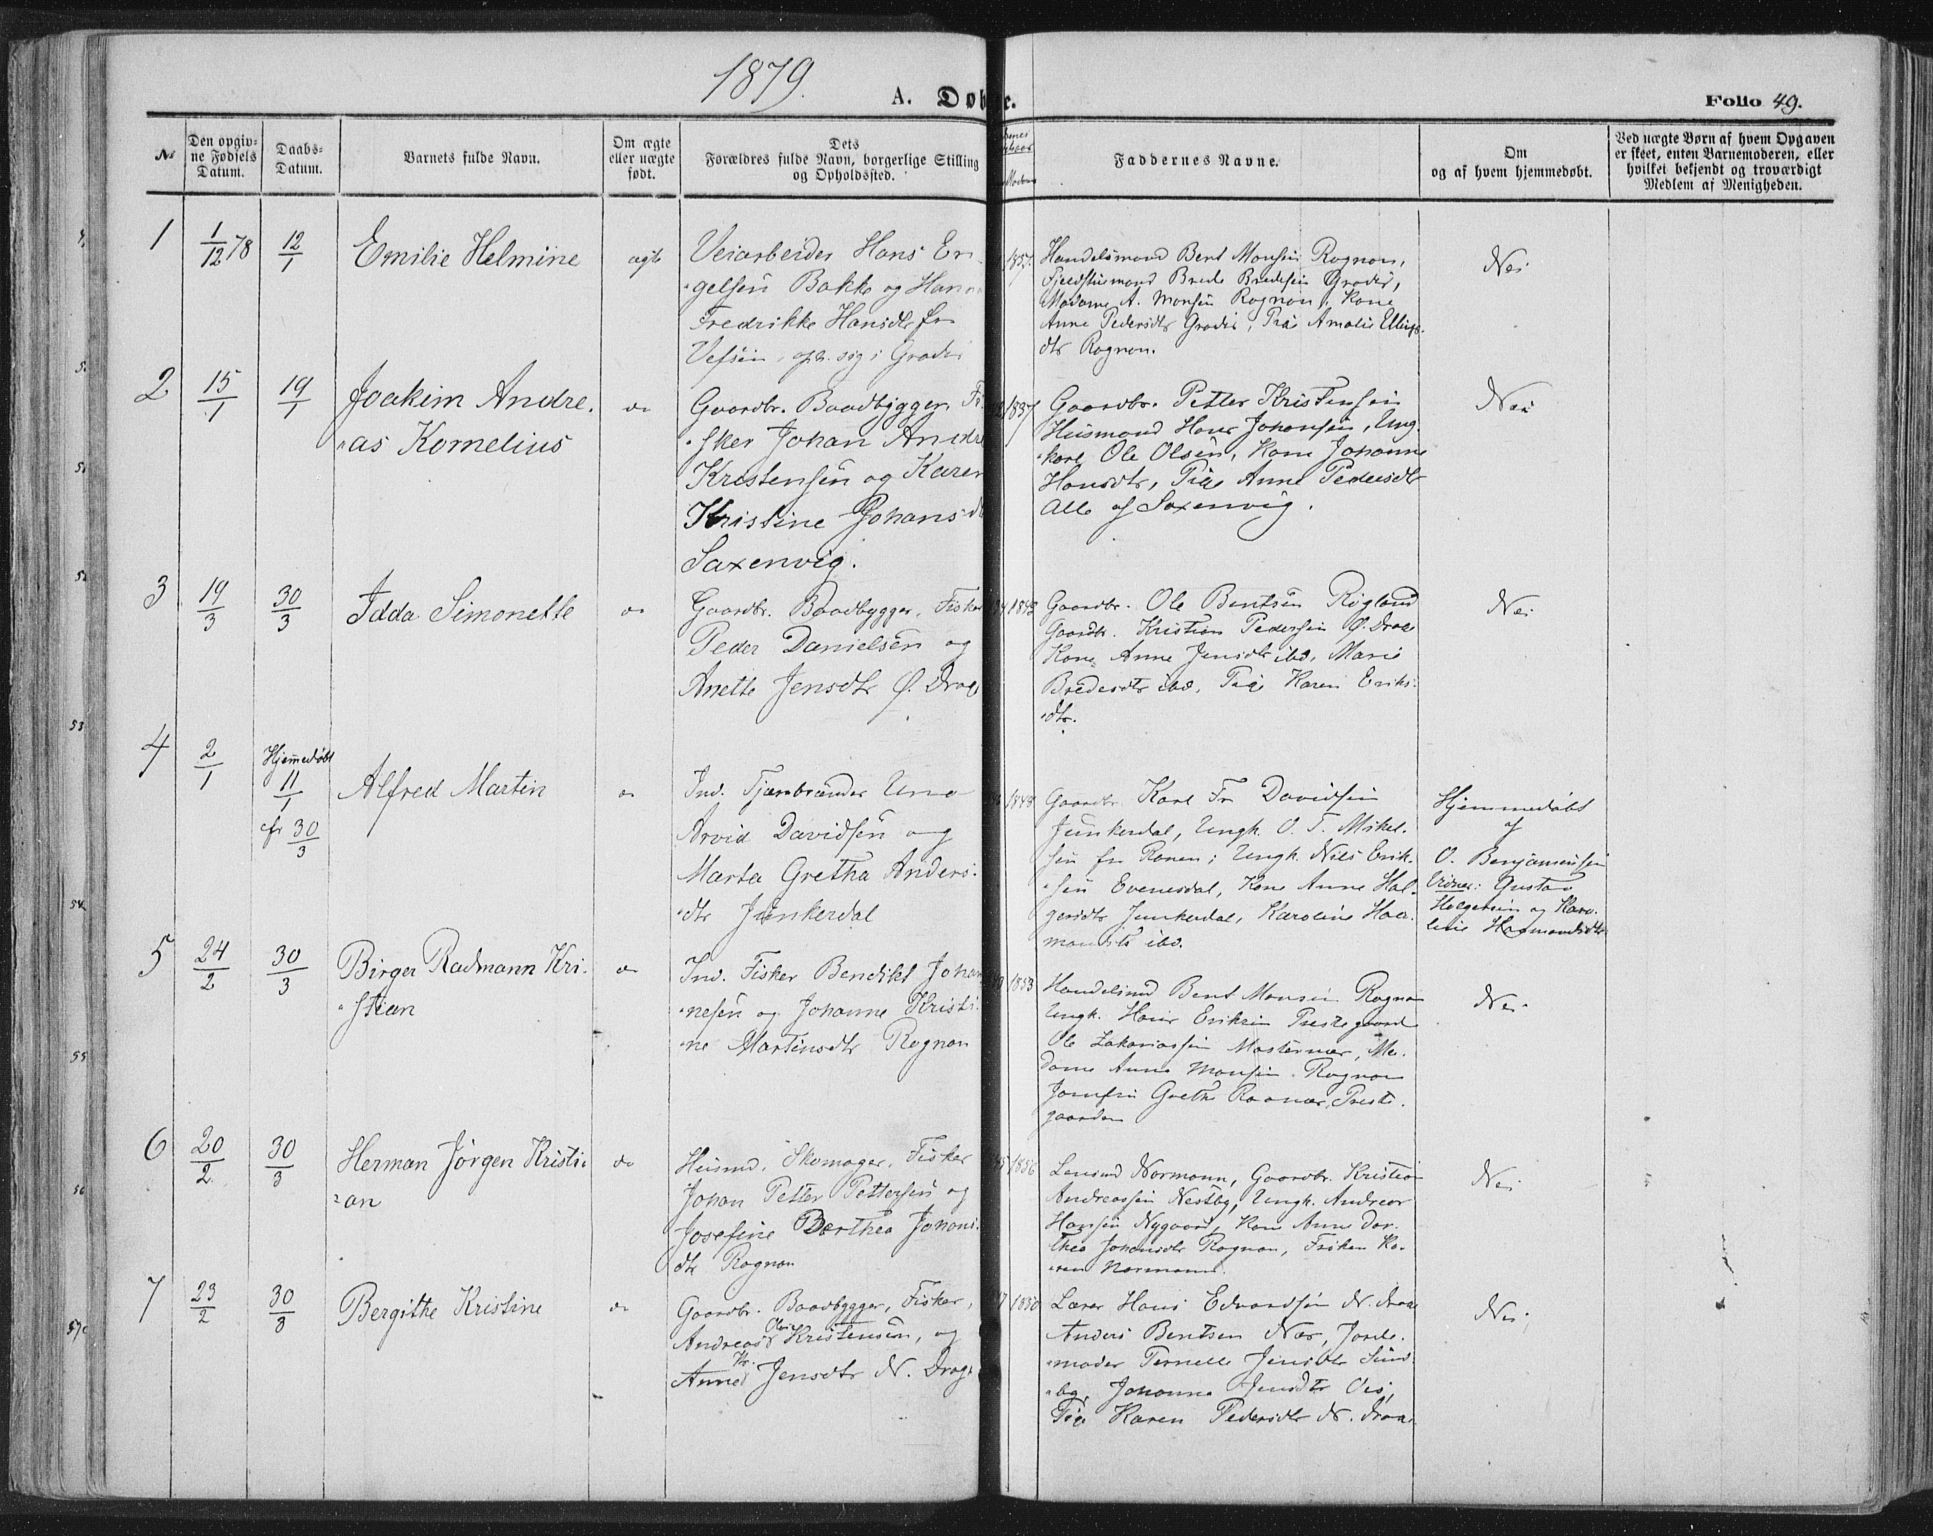 1879.
A. Døbte.
Folio 49.
No
Den opgiv-
ne Fødsels
Datum.
Daabs-
Datum.
Barnets fulde Navn.
Om ægte
eller uægte
født.
Dets
Forældres fulde Navn, borgerlige Stilling
og Opholdssted.
Faddernes Navne.
Om
og af hvem hjemmedøbt.
Ved uægte Børn af hvem Opgaven
er skeet, enten Barnemoderen, eller
hvilket bekjendt og troværdigt
Medlem af Menigheden.
1
1/12 78
12/1
Emilie Helmine
ægte
Veiarbeider Hans En-
gelsen Bakke og Han
Fredrikke Hansdtr fra
Vefsen, oph. sig i Gradis
1857.
Handelsmand Bent Monsen Rognan,
Fjeldstuemand Brede Bredesen Gradis,
Madame A. Monsen Rognan, Kone
Anne Pedersdtr Gradis, Pige Amalie Ellings-
dtr Rognan.
Nei
2
15/1
19/1
Joakim Andre-
as Kornelius
do
Gaardbr. Baadbygger, Fi-
sker Johan Andre
Kristensen og Karen
Kristine Johansd
Saxenvig.
1837
Gaardbr. Petter Kristensen
Husmand Hans Johansen, Ung-
karl Ole Olsen, Kone Johanne
Hansdtr, Pige Anne Pedersdtr
Alle af Saxenvig.
Nei
3
19/3
30/3
Idda Simonette
do
Gaardbr. Baadbygger, Fisker
Peder Danielsen og
Anette Jensdtr Ø. Drage
1842
Gaardbr. Ole Bentsen Røgland
Gaardb. Kristian Pedersen Ø. Drage
Kone Anne Jensdtr ibd, Marie
Bredesdtr ibd, Pige Karen Eriks-
dtr.
Nei
4
2/1
Hjemmedøbt
11/1
fr 30/3
Alfred Martin
do
Ind. Tjærebrænder Uno
Arvid Davidsen og
Marta Gretha Anders-
dtr Junkerdal
1848
Gaardbr. Karl Fr Davidsen
Junkerdal, Ungk. O. T. Mikel-
sen fra Ranen; Ungk. Nils Erik-
sen Evenesdal, Kone Anne Hol-
gersdtr Junkerdal, Karoline Haa-
mansdtr ibd.
Hjemmedøbt
af
O. Benjaminsen
Vidner: Gustav
Holgersen og Karo-
line Haamansdtr
5
24/2
30/3
Birger Radmann Kri-
stian
do
Ind. Fisker Benedikt Johan
nesen og Johanne Kristi-
ne Martinsdtr Rognan
1853
Handelsmd Bent Monsen Rognan
Ungk. Hans Eriksen Prestegaard
Ole Zakariassen Mosternær, Ma-
dame Anne Monsen Rognan
Jomfru Grethe Raanær, Preste-
gaarden
Nei
6
20/2
30/3
Herman Jørgen Kristi-
an
do
Husmd. Skomager, Fisker
Johan Petter Pettersen og
Josefine Dorthea Johans-
dtr Rognan
1856
Lensmd Normann, Gaardbr. Kristian
Andreassen Nestby, Ungk. Andreas
Hansen Nygaard, Kone Anne Dor-
thea Johansdtr Rognan, Frøken Ka-
ren Normann.
Nei
7
23/2
30/3
Bergithe Kristine
do
Gaardbr. Baadbygger, Fisker,
Andreas Olai Kristensen, og
Anne Kr. Jensdtr N. Drage
1850
Lærer Hans Edvardsen N. Drage
Anders Bentsen Nær, Jorde-
moder Pernelle Jensdtr Sund-
by, Johanne Jensdtr Os,
Pige Karen Pedersdtr N. Drage
Nei